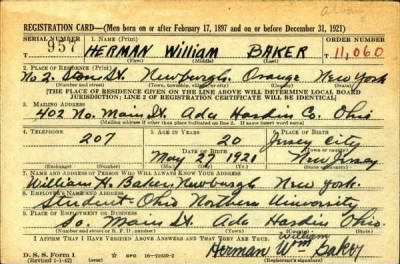 REGISTRATION CARD—(Men born on or after February 17, 1897 and on or before December 31, 1921)
SERIAL NUMBER 1. NAME (Print) ORDER NUMBER
957 HERMAN William BAKER 11,060
(First) (Middle) (Last)
2. PLACE OF RESIDENCE (Print)
No 2. St. Newburgh Orange New York
(Number and street) (Town, township, village, or city) (County) (State)
[THE PLACE OF RESIDENCE GIVEN ON THE LINE ABOVE WILL DETERMINE LOCAL BOARD
JURISDICTION; LINE 2 OF REGISTRATION CERTIFICATE WILL BE IDENTICAL]
3. MAILING ADDRESS
402 No. Main St. Ada Hardin Co. Ohio
[Mailing address if other than place indicated on line 2. If same insert word same]
4. TELEPHONE 5. AGE IN YEARS 6. PLACE OF BIRTH
207 20 Jersey City
DATE OF BIRTH (Town or county)
May 27 1921 New Jersey
(Exchange) (Number) (Mo.) (Day) (Yr.) (State or country)
7. NAME AND ADDRESS OF PERSON WHO WILL ALWAYS KNOW YOUR ADDRESS
William H. Baker Newburgh New York
8. EMPLOYER'S NAME AND ADDRESS
Student Ohio Northern University
9. PLACE OF EMPLOYMENT OR BUSINESS
So. Main St. Ada Hardin Ohio.
(Number and street or R. F. D. number) (Town) (County) (State)
I AFFIRM THAT I HAVE VERIFIED ABOVE ANSWERS AND THAT THEY ARE TRUE.
William
Herman Wm Baker
D. S. S. Form 1
(Revised 1-1-42) (over) (Registrant's signature)